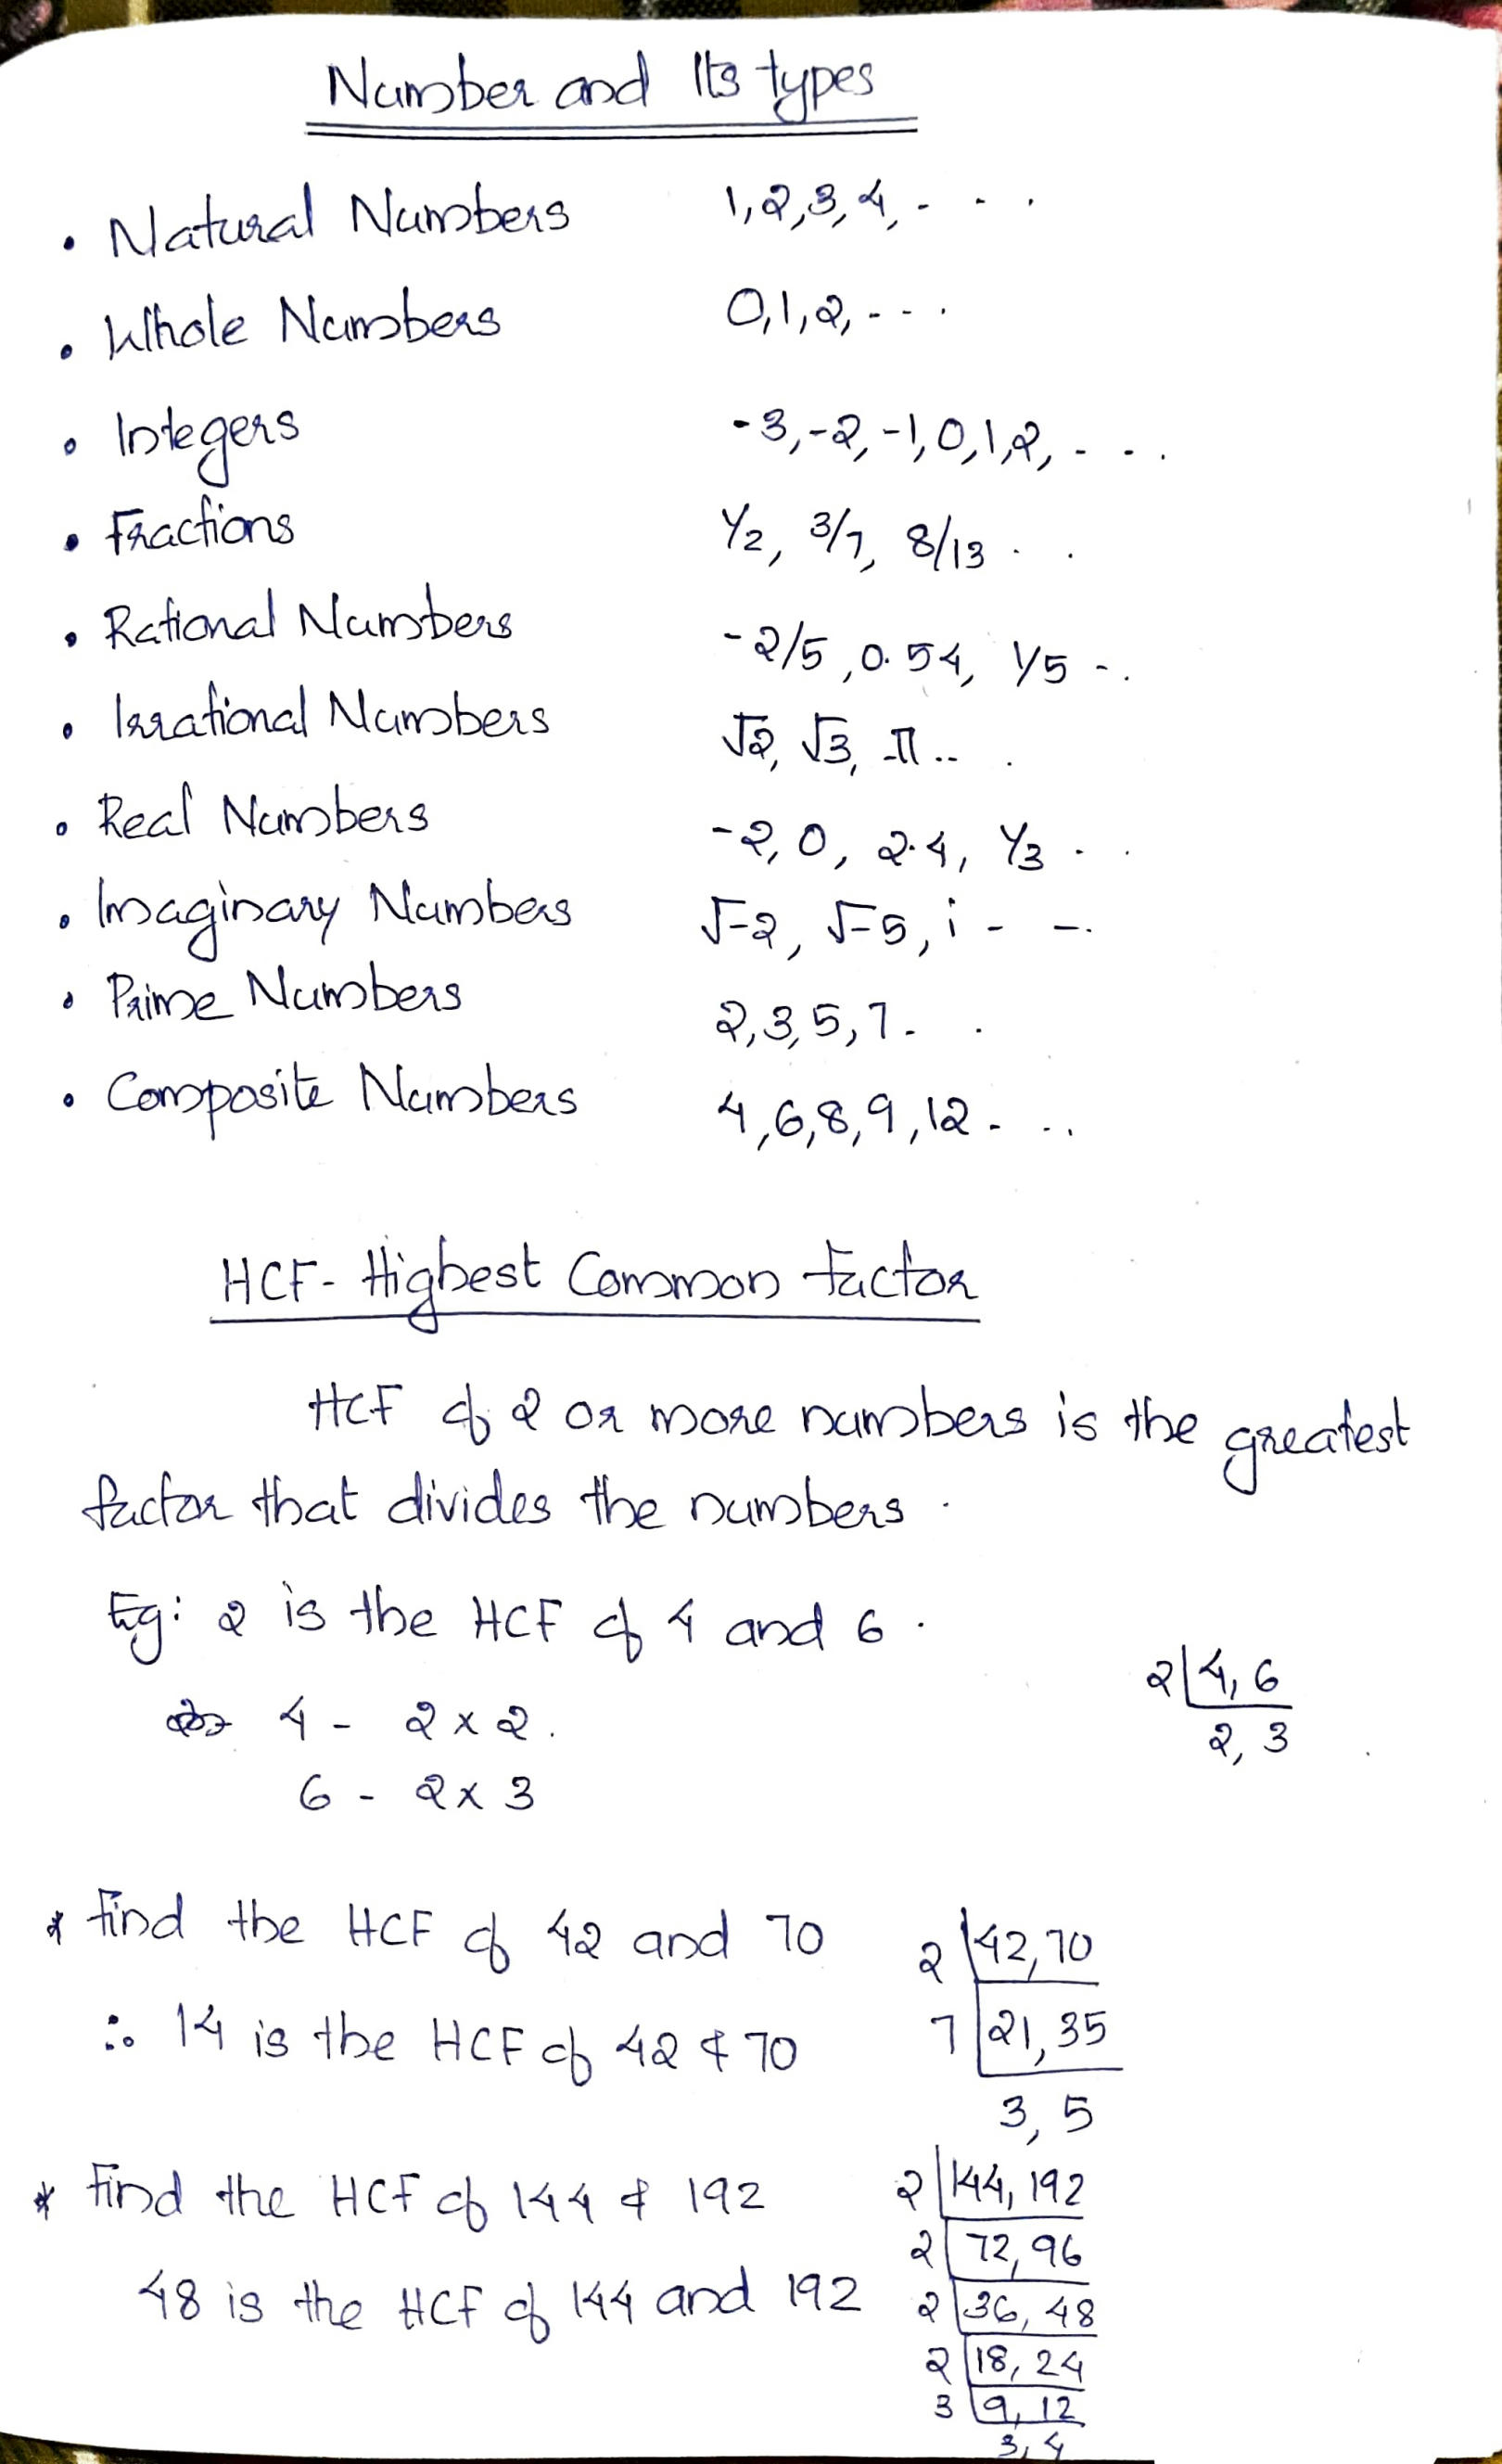 Number and Its types
• Natural Numbers 1,2,3,4, - - .
• Whole Numbers 0,1,2, - - .
• Integers -3,-2,-1,0,1,2, - - .
• Fractions 1/2, 3/7, 8/13 . .
• Rational Numbers -2/5, 0.54, 1/5 - .
• Irrational Numbers √2, √3, π .. .
• Real Numbers -2, 0, 2.4, 1/3 . .
• Imaginary Numbers √-2, √-5, i - - .
• Prime Numbers 2,3,5,7 - .
• Composite Numbers 4,6,8,9,12 - ..
HCF - Highest Common Factor
HCF of 2 or more numbers is the greatest
factor that divides the numbers.
Eg: 2 is the HCF of 4 and 6.
2 | 4, 6
4 - 2 x 2.
2, 3
6 - 2 x 3
* Find the HCF of 42 and 70
2 | 42, 70
∴ 14 is the HCF of 42 & 70
7 | 21, 35
3, 5
* Find the HCF of 144 & 192
2 | 144, 192
2 | 72, 96
48 is the HCF of 144 and 192
2 | 36, 48
2 | 18, 24
3 | 9, 12
3, 4